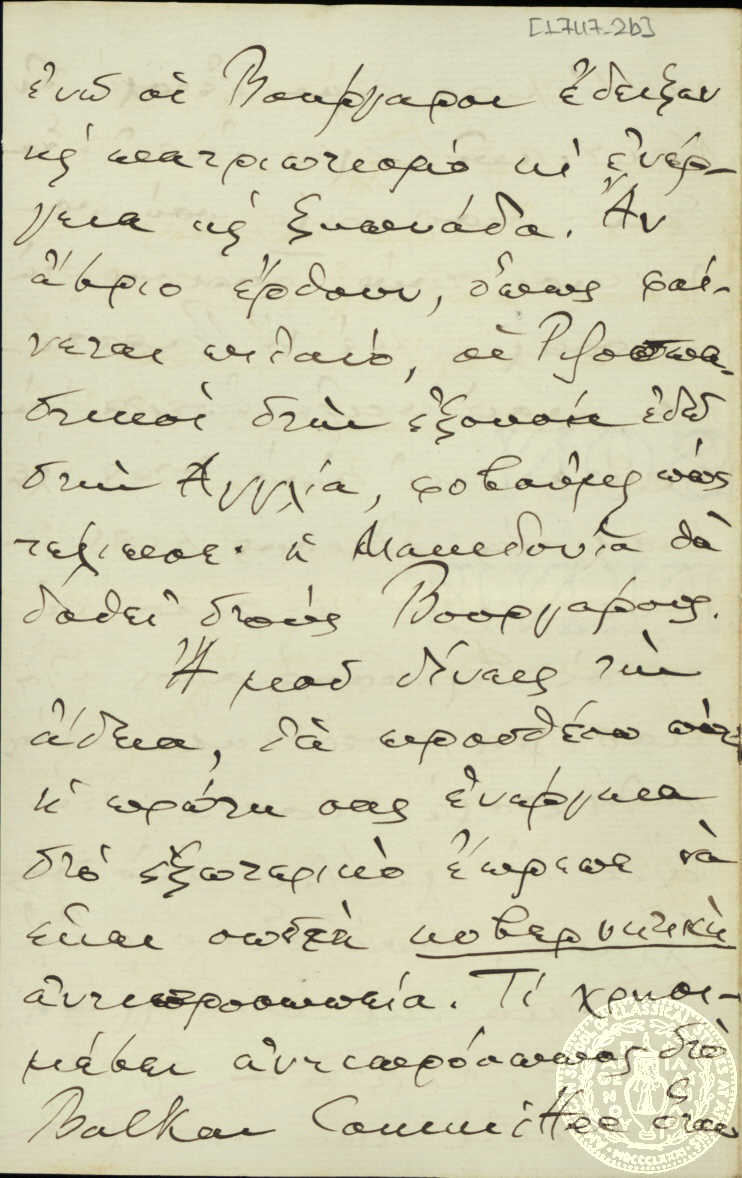 [1747-2b]
ἐνῶ οἱ Βουργαροι ἔδειξαν
κὶ πατριωτισμὸ κὶ ἐνέρ-
γεια κὶ ξυπνάδα. Ἂν
ἄβριο ἔρθουν, ὅπως φαί-
νεται πιθανό, οἱ Ριζοσπα-
στικοὶ στὴν ἐξουσία ἐδῶ
στὴν Ἀγγλία, φοβούμαι πὼς
τελειωσε· ἡ Μακεδονία θὰ
δοθεῖ στοὺς Βουργάρους.
Ἂ μοῦ δίνεις τὴν
ἄδεια, θὰ προσθέσω πὼς
ἡ πρώτη σας ἐνέργεια
στὸ ἐξωτερικὸ ἔπρεπε νὰ
εἶναι σωστὴ κυβερνητικὴ
ἀντιπροσωπεία. Τί χρησι-
μέβει ἀντιπρόσωπος στὸ
Balkan Committee ὅταν